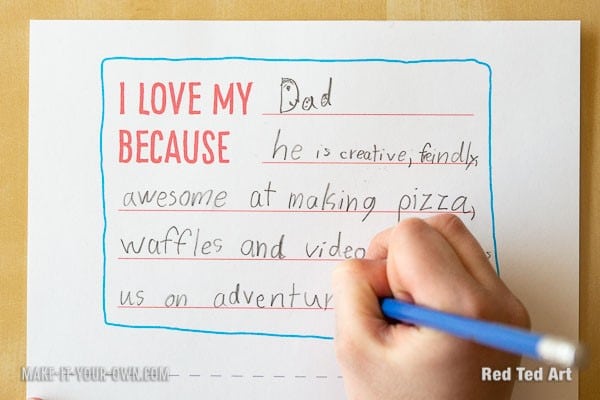 I LOVE MY Dad
BECAUSE he is creative, feindly,
awesome at making pizza,
waffles and video
us on adventur
MAKE-IT-YOUR-OWN.COM
Red Ted Art